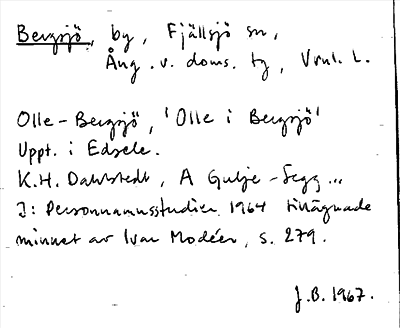 Bergsjö, by, Fjällsjö sn,
Ång. v. doms. tg, Vnl. L.
Olle-Bergsjö, 'Olle i Bergsjö'
Uppt. i Edsele.
K.H. Dahlstedt, A Gubje-Segg...
I: Personnamnsstudier 1964 tillägnade
minnet av Ivar Modéer, s. 279.
J.B. 1967.